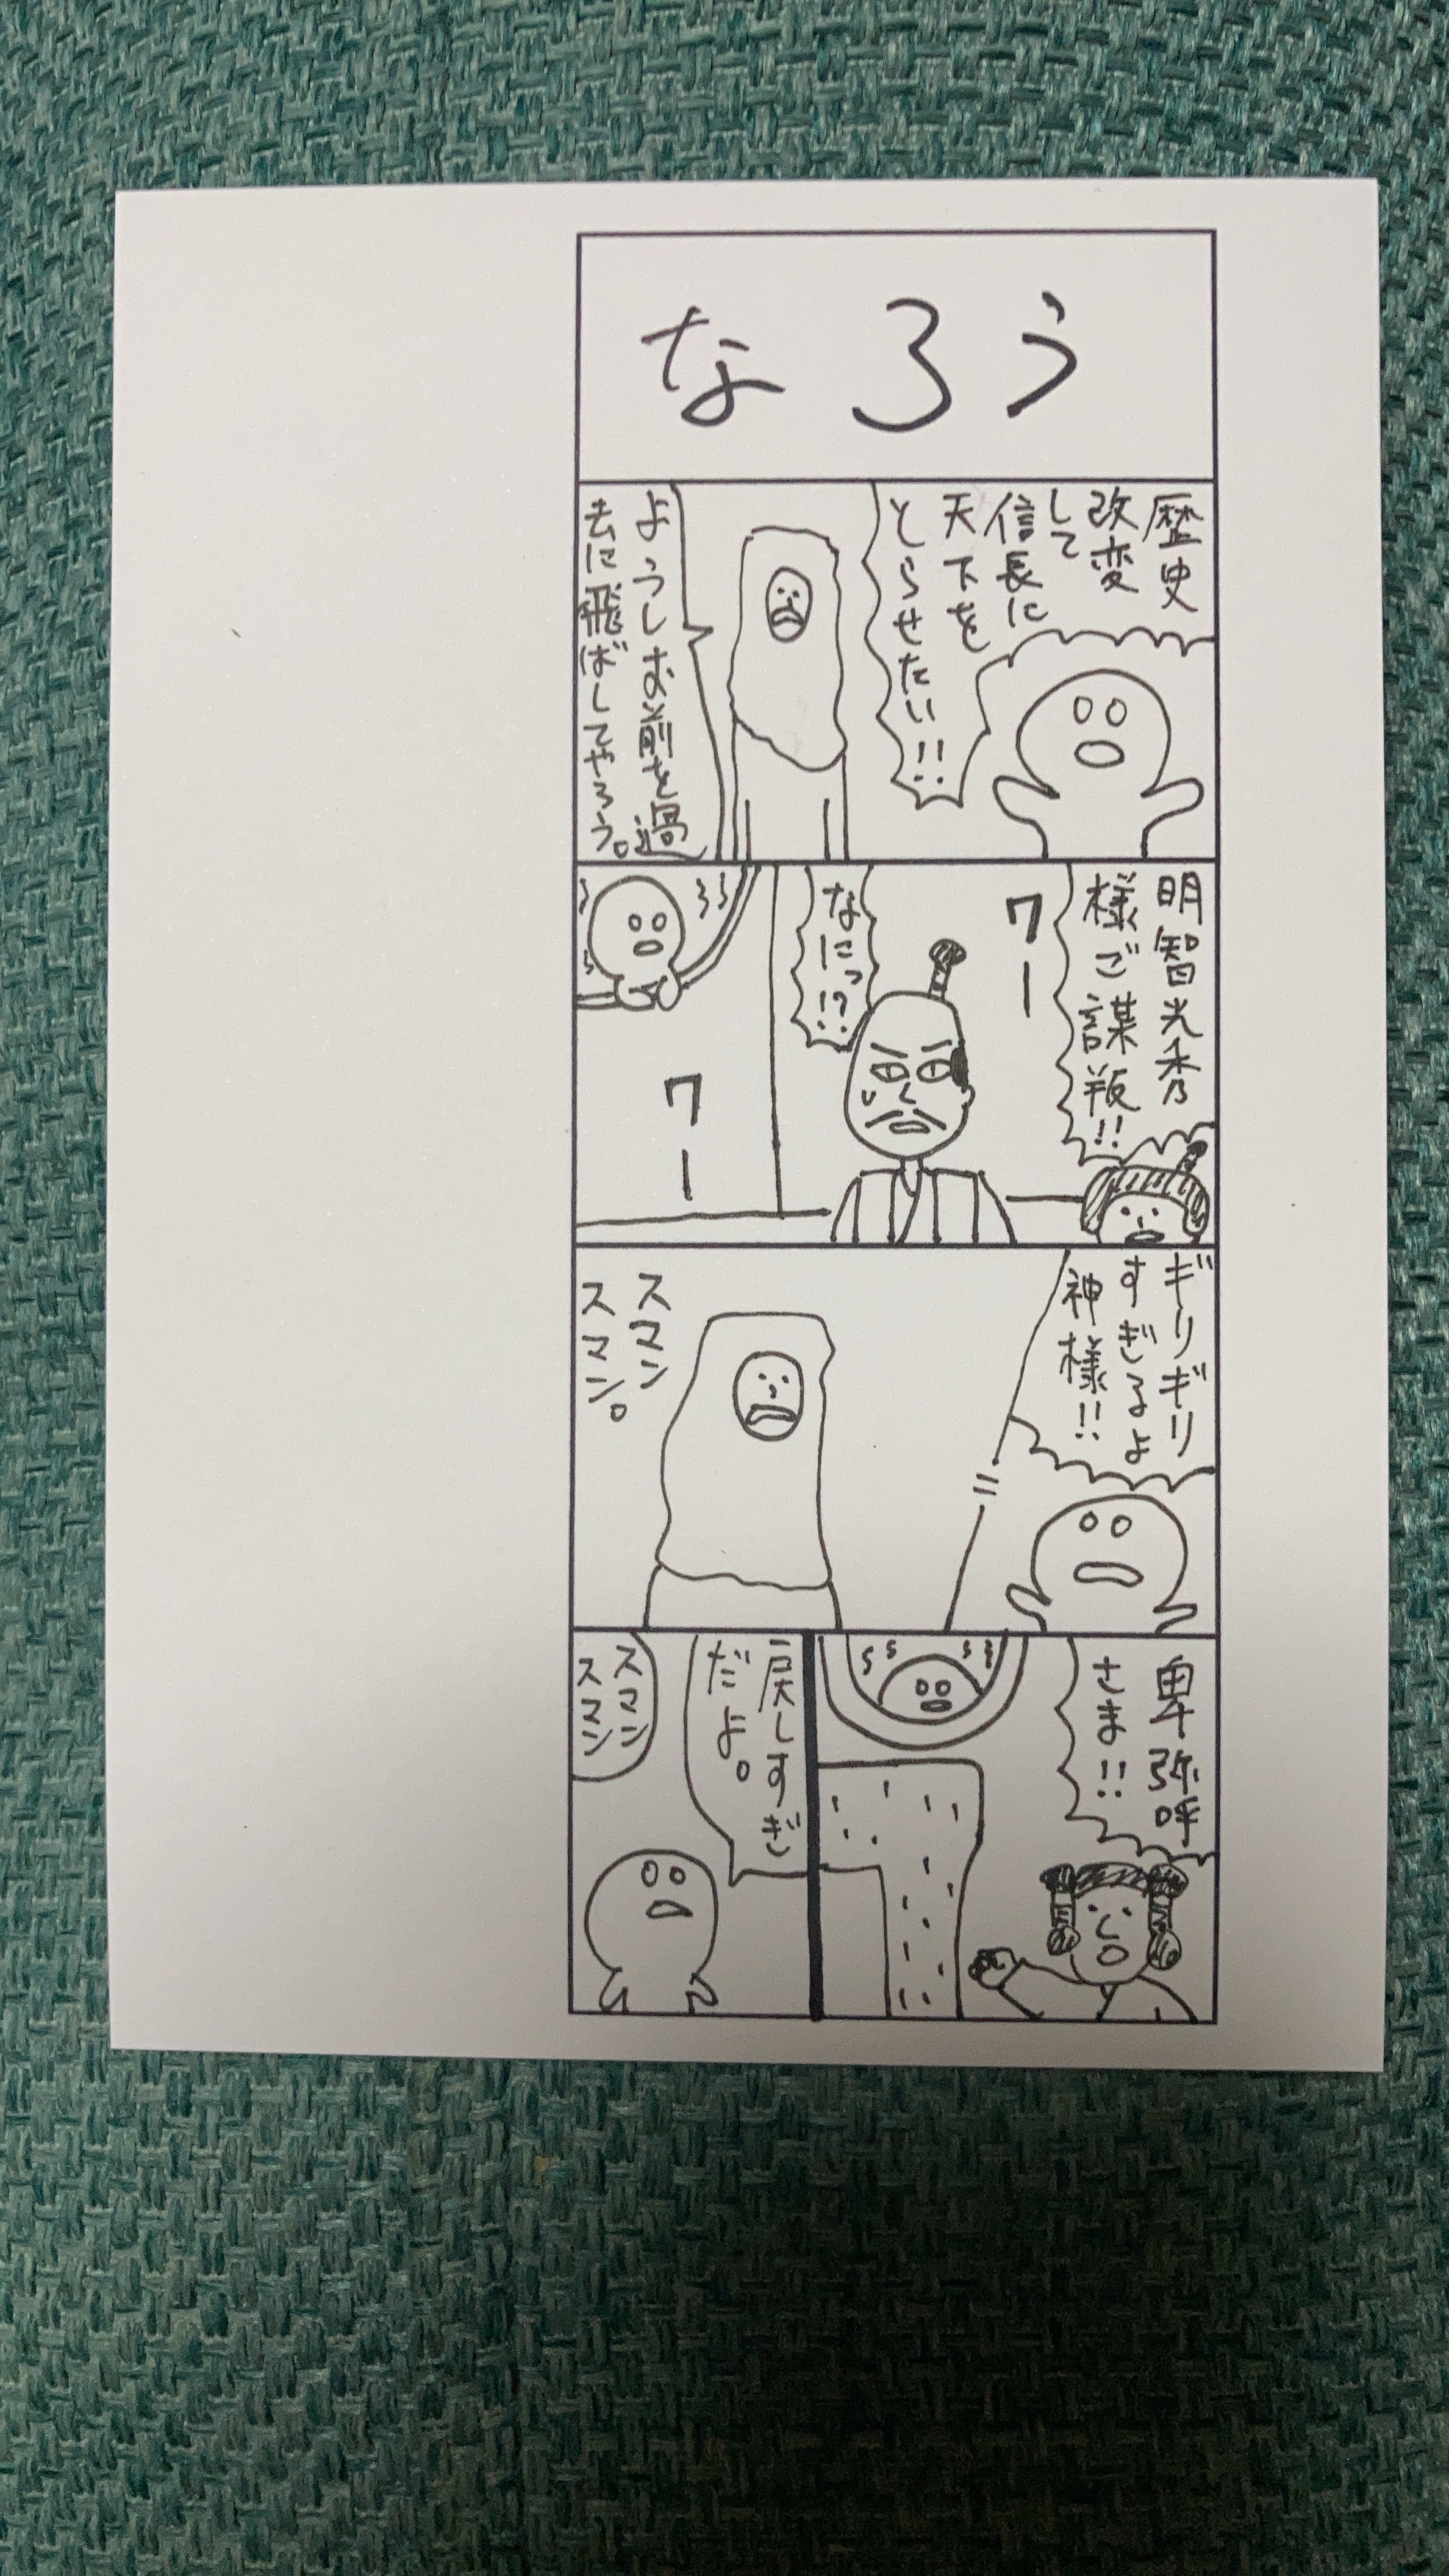 なろう
歴史
改変
して
信長に
天下を
とらせたい!!
ようしお前を過
去に飛ばしてやろう。
明智光秀
様ご謀叛!!
ワー
なにっ!?
ワー
ギリギリ
すぎるよ
神様!!
スマン
スマン。
卑弥呼
さま!!
戻しすぎ
だよ。
スマン
スマン